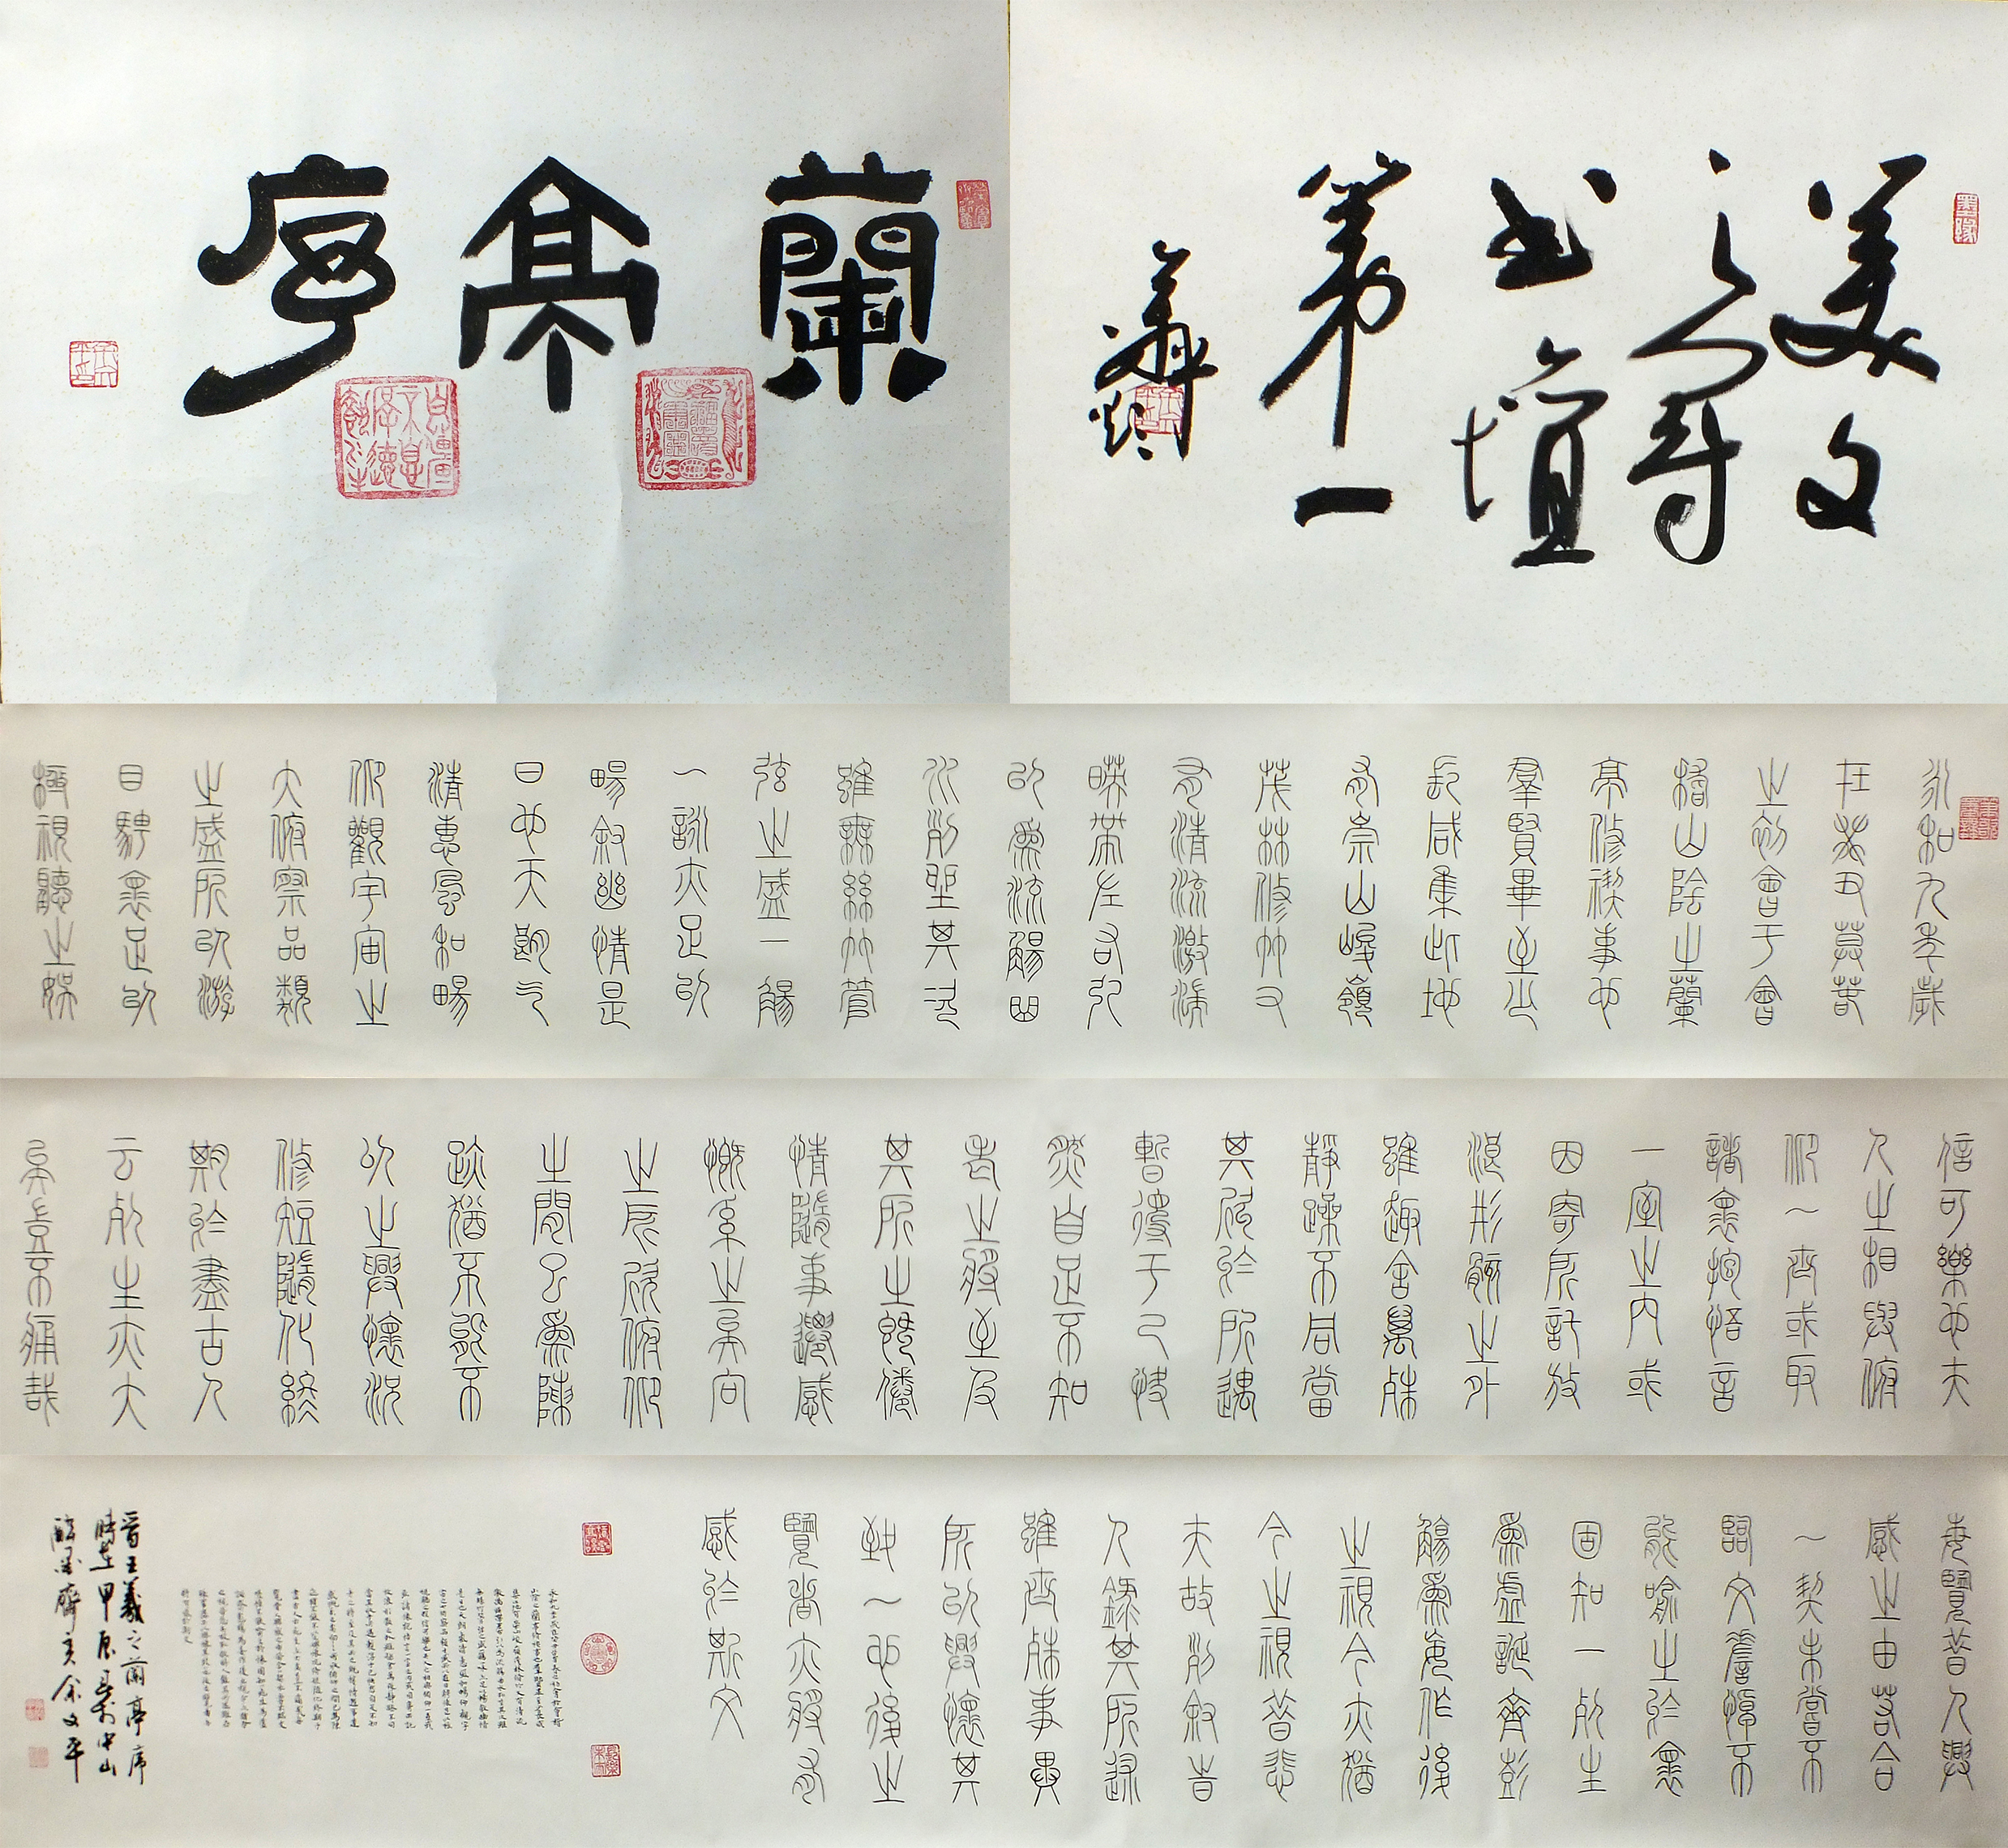 美文
之尊
书壇
第一
蘭亭序
永和九年歲
在癸丑莫萅
之初會于會
稽山陰之蘭
亭修禊事也
羣賢畢至少
長咸集此地
有崇山峻嶺
茂林修竹又
有清流激湍
暎帶左右引
以為流觴曲
水列坐其次
雖無絲竹管
弦之盛一觴
一詠亦足以
暢敘幽情是
日也天朗气
清惠風和暢
仰觀宇宙之
大俯察品類
之盛所以游
目騁懷足以
極視聽之娛
信可樂也夫
人之相與俯
仰一世或取
諸懷抱悟言
一室之內或
因寄所託放
浪形骸之外
雖趣舍萬殊
靜躁不同當
其欣於所遇
暫得于己快
然自足不知
老之將至及
其所之既倦
情隨事遷感
慨系之矣向
之所欣俯仰
之間已為陳
跡猶不能不
以之興懷況
修短隨化終
期於盡古人
云死生亦大
矣豈不痛哉
每覽昔人興
感之由若合
一契未嘗不
臨文嗟悼不
能喻之於懷
固知一死生
為虛誕齊彭
殤為妄作後
之視今亦猶
今之視昔悲
夫故列敘時
人錄其所述
雖世殊事異
所以興懷其
致一也後之
覽者亦將有
感於斯文
晋王羲之蘭亭序
時在甲中山
醉墨齋主余文平